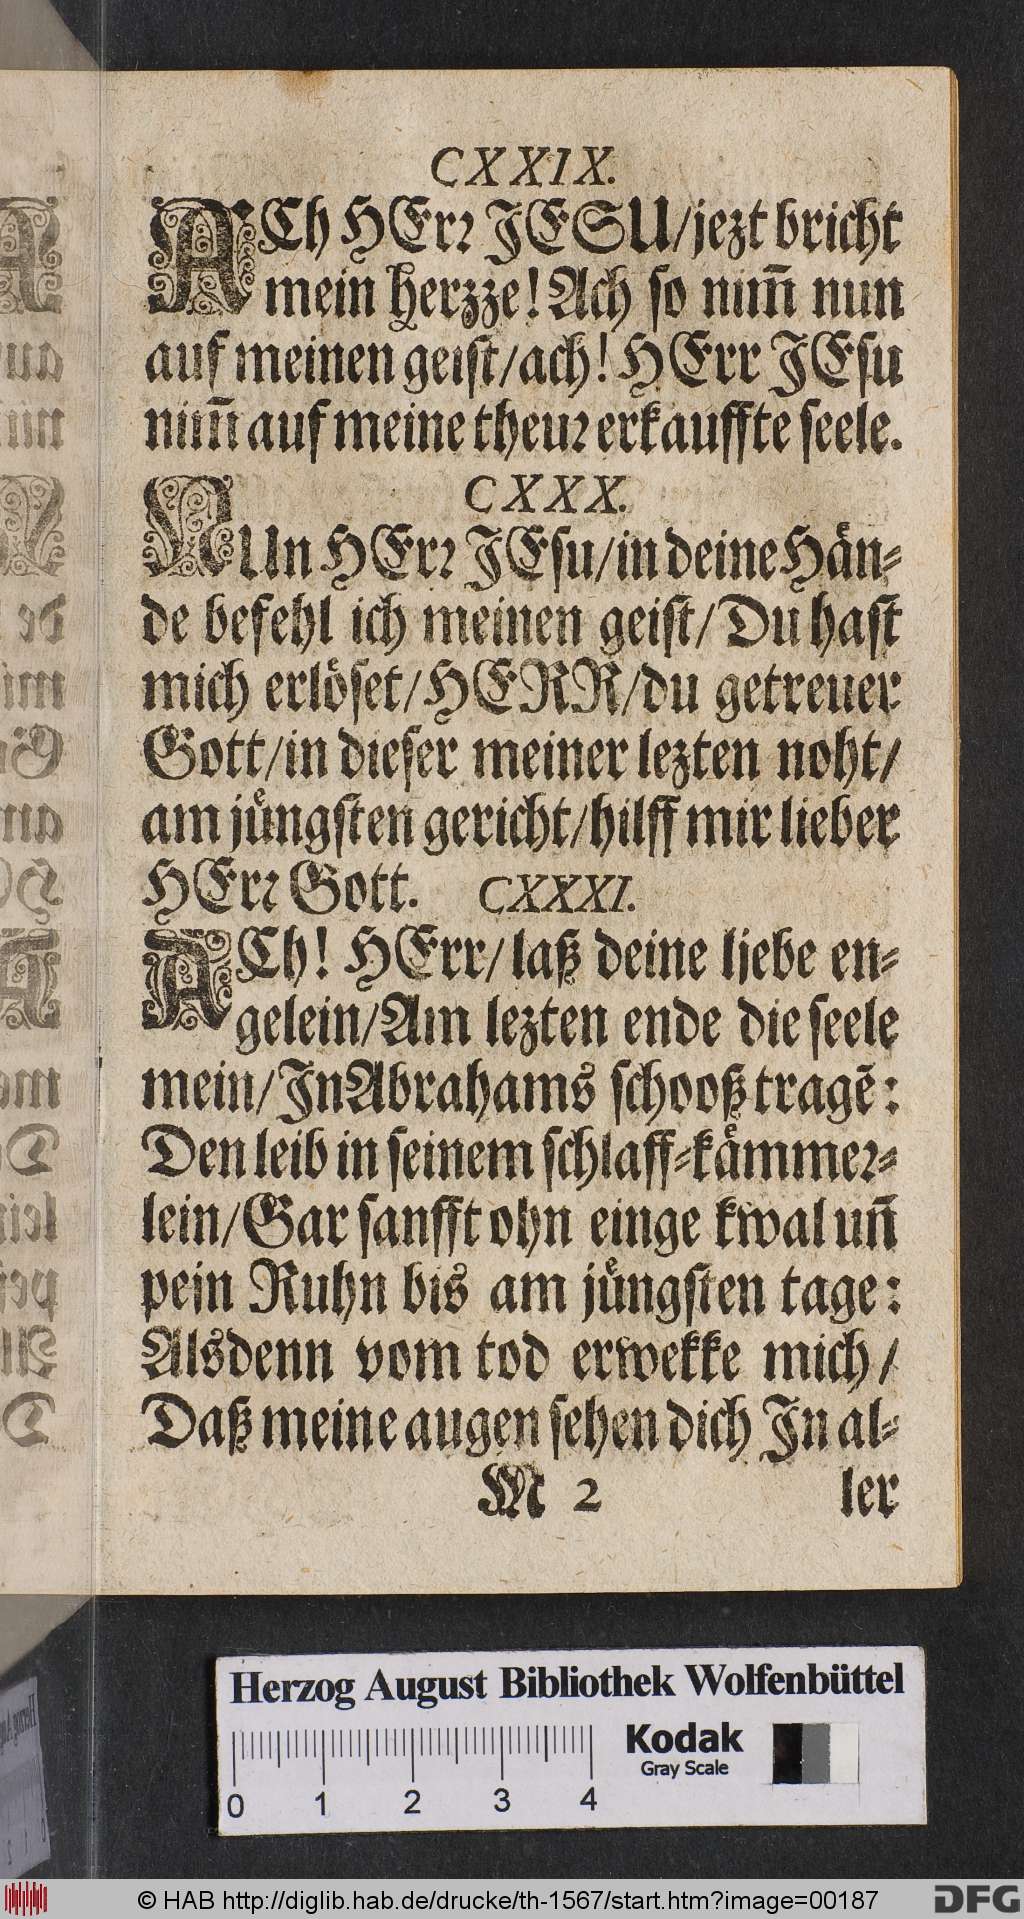 CXXIX.
ACh HErꝛ JESU/jezt bricht
mein herzze! Ach so nim̃ nun
auf meinen geist/ach! HErr JEsu
nim̃ auf meine theuꝛ erkauffte seele.
CXXX.
NUn HErꝛ JEsu/in deine Hän⸗
de befehl ich meinen geist/Du hast
mich erlöset/HERR/du getreuer
Gott/in dieser meiner lezten noht/
am jüngsten gericht/hilff mir lieber
HErꝛ Gott. CXXXI.
ACh! HErr/laß deine ljebe en⸗
gelein/Am lezten ende die seele
mein/Jn Abrahams schooß tragẽ:
Den leib in seinem schlaff⸗kämmeꝛ⸗
lein/Gar sanfft ohn einge kwal un̄
pein Ruhn bis am jüngsten tage:
Alsdenn vom tod erwekke mich/
Daß meine augen sehen dich Jn al⸗
M 2 ler
Herzog August Bibliothek Wolfenbüttel
Kodak
Gray Scale
0 1 2 3 4
© HAB http://diglib.hab.de/drucke/th-1567/start.htm?image=00187
DFG